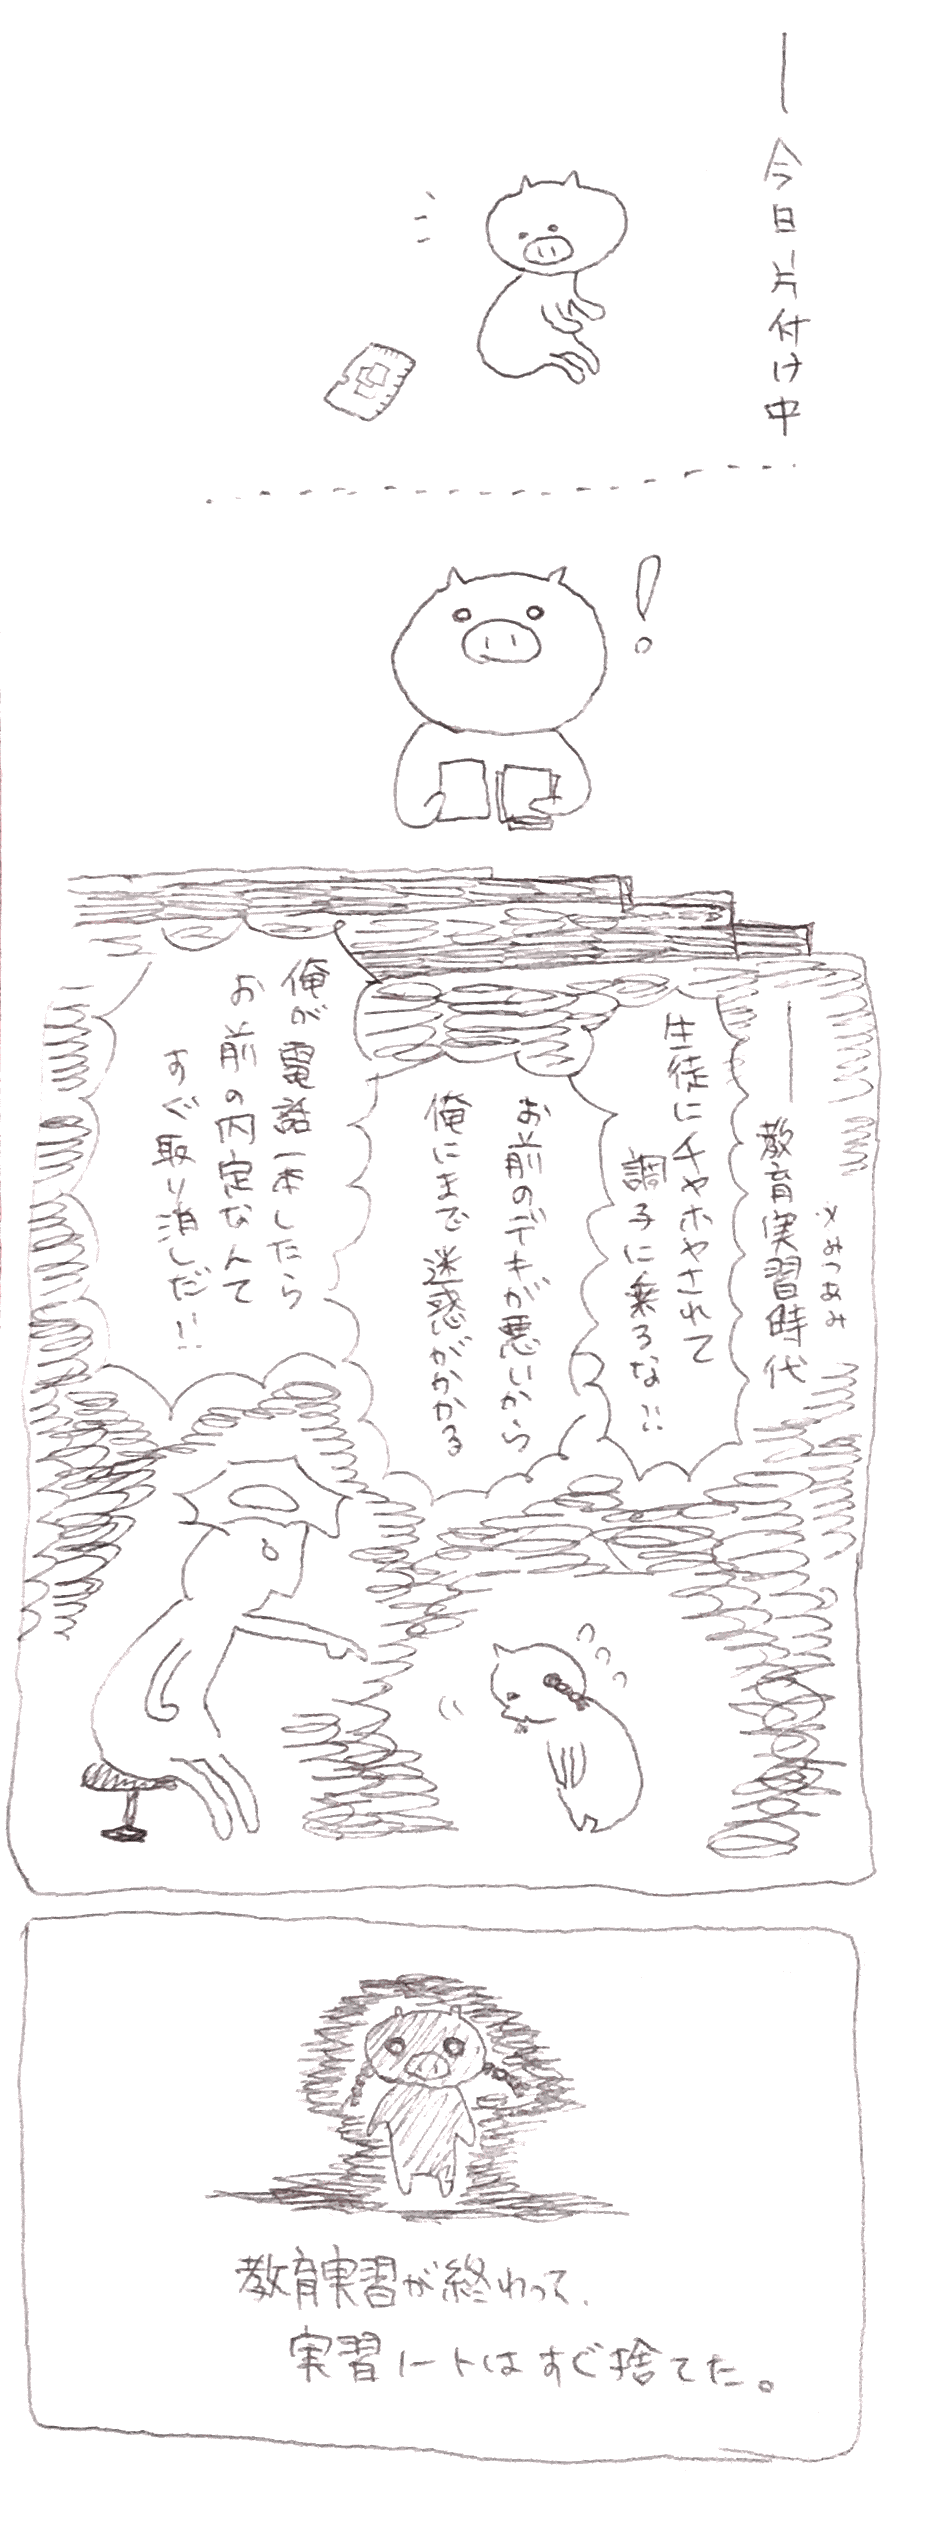 ―今日片付け中
！
―教育実習時代
※みつあみ
生徒にチヤホヤされて
調子に乗るな!!
お前のデキが悪いから
俺にまで迷惑がかかる
俺が電話一本したら
お前の内定なんて
すぐ取り消しだ!!
教育実習が終わって、
実習ノートはすぐ捨てた。